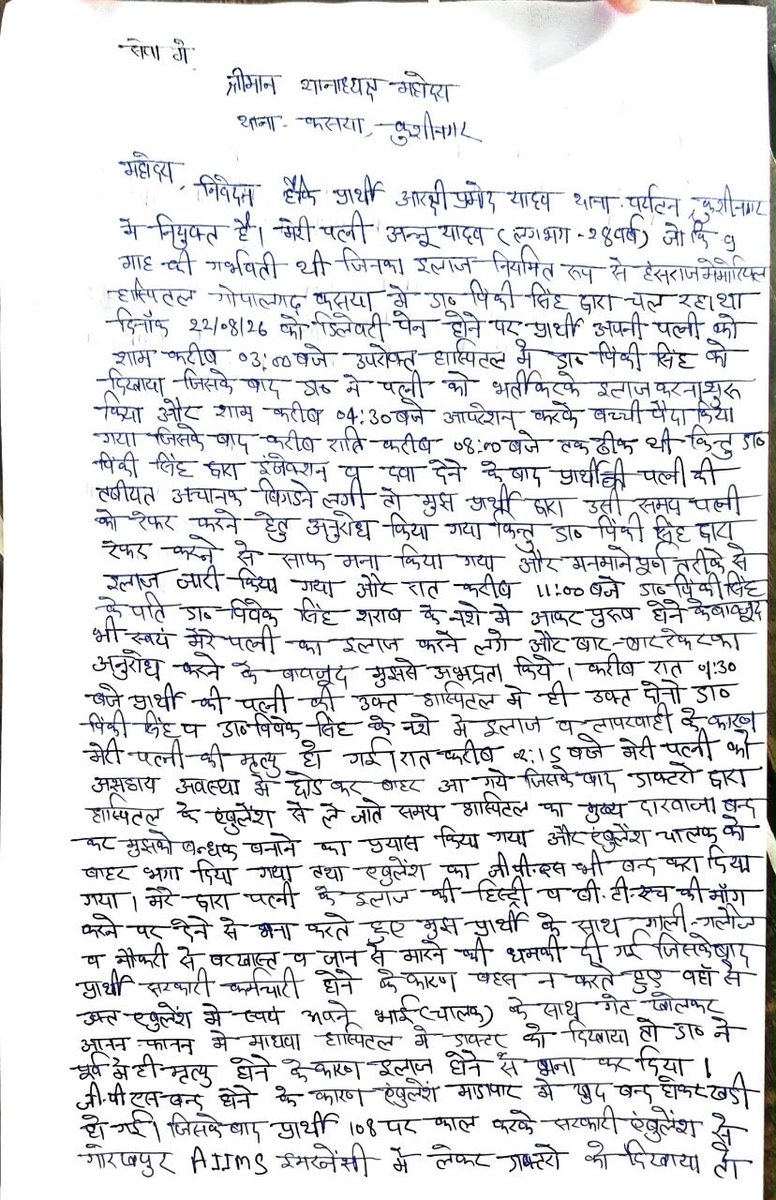 सेवा में,
श्रीमान थानाध्यक्ष महोदय
थाना - कसया, कुशीनगर
महोदय,
निवेदन है कि प्रार्थी आरक्षी प्रमोद यादव थाना पर्यटन, कुशीनगर
मे नियुक्त है। मेरी पत्नी अन्नू यादव (लगभग - 28 वर्ष) जो कि 9
माह की गर्भवती थी जिनका इलाज नियमित रूप से हंसराज मेमोरियल
हास्पिटल गोपालगढ कसया मे डा० पिंकी सिंह द्वारा चल रहा था
दिनाँक 22/08/26 को डिलेवरी पेन होने पर प्रार्थी अपनी पत्नी को
शाम करीब 03:00 बजे उपरोक्त हास्पिटल मे डा० पिंकी सिंह को
दिखाया जिसके बाद डा० ने पत्नी को भर्ती करके इलाज करना शुरु
किया और शाम करीब 04:30 बजे आपरेशन करके बच्ची पैदा किया
गया जिसके बाद करीब रात्रि करीब 08:00 बजे तक ठीक थी किन्तु डा०
पिंकी सिंह द्वारा इंजेक्शन व दवा देने के बाद प्रार्थी की पत्नी की
तबीयत अचानक बिगडने लगी तो मुझ प्रार्थी द्वारा उसी समय पत्नी
को रेफर करने हेतु अनुरोध किया गया किन्तु डा० पिंकी सिंह द्वारा
रेफर करने से साफ मना किया गया और मनमाने पूर्ण तरीके से
इलाज जारी किया गया और रात करीब 11:00 बजे डा० पिंकी सिंह
के पति डा० विवेक सिंह शराब के नशे मे आकर पुरुष होने के बावजूद
भी स्वयं मेरे पत्नी का इलाज करने लगे और बार-बार रेफर का
अनुरोध करने के बावजूद मुझसे अभद्रता किये। करीब रात 1:30
बजे प्रार्थी की पत्नी की उक्त हास्पिटल मे ही उक्त दोनो डा०
पिंकी सिंह व डा० विवेक सिंह के नशे मे इलाज व लापरवाही के कारण
मेरी पत्नी की मृत्यु हो गई। रात करीब 2:15 बजे मेरी पत्नी को
असहाय अवस्था में छोडकर बाहर आ गये जिसके बाद डाक्टरो द्वारा
हास्पिटल के एंबुलेंश से ले जाते समय हास्पिटल का मुख्य दारवाजा बन्द
कर मुझको बन्धक बनाने का प्रयास किया गया और एंबुलेंश चालक को
बाहर भगा दिया गया तथा एंबुलेंश का जी.पी.एस भी बन्द करा दिया
गया। मेरे द्वारा पत्नी के इलाज की हिस्ट्री व बी.टी.एच की माँग
करने पर देने से मना करते हुए मुझ प्रार्थी के साथ गाली-गलौज
व नौकरी से बरखास्त व जान से मारने की धमकी दी गई जिसके बाद
प्रार्थी सरकारी कर्मचारी होने के कारण बहस न करते हुए वहाँ से
उक्त एंबुलेंश मे स्वयं अपने भाई (चालक) के साथ गेट खोलकर
आनन फानन मे माधवा हास्पिटल मे डाक्टर को दिखाया तो डा० ने
पूर्व मे ही मृत्यु होने के कारण इलाज होने से मना कर दिया।
जी.पी.एस बन्द होने के कारण एंबुलेंश माडापार मे खुद बन्द होकर खडी
हो गई। जिसके बाद प्रार्थी 108 पर काल करके सरकारी एंबुलेंश से
गोरखपुर AIIMS इमरजेंसी मे लेकर डाक्टरो को दिखाया तो